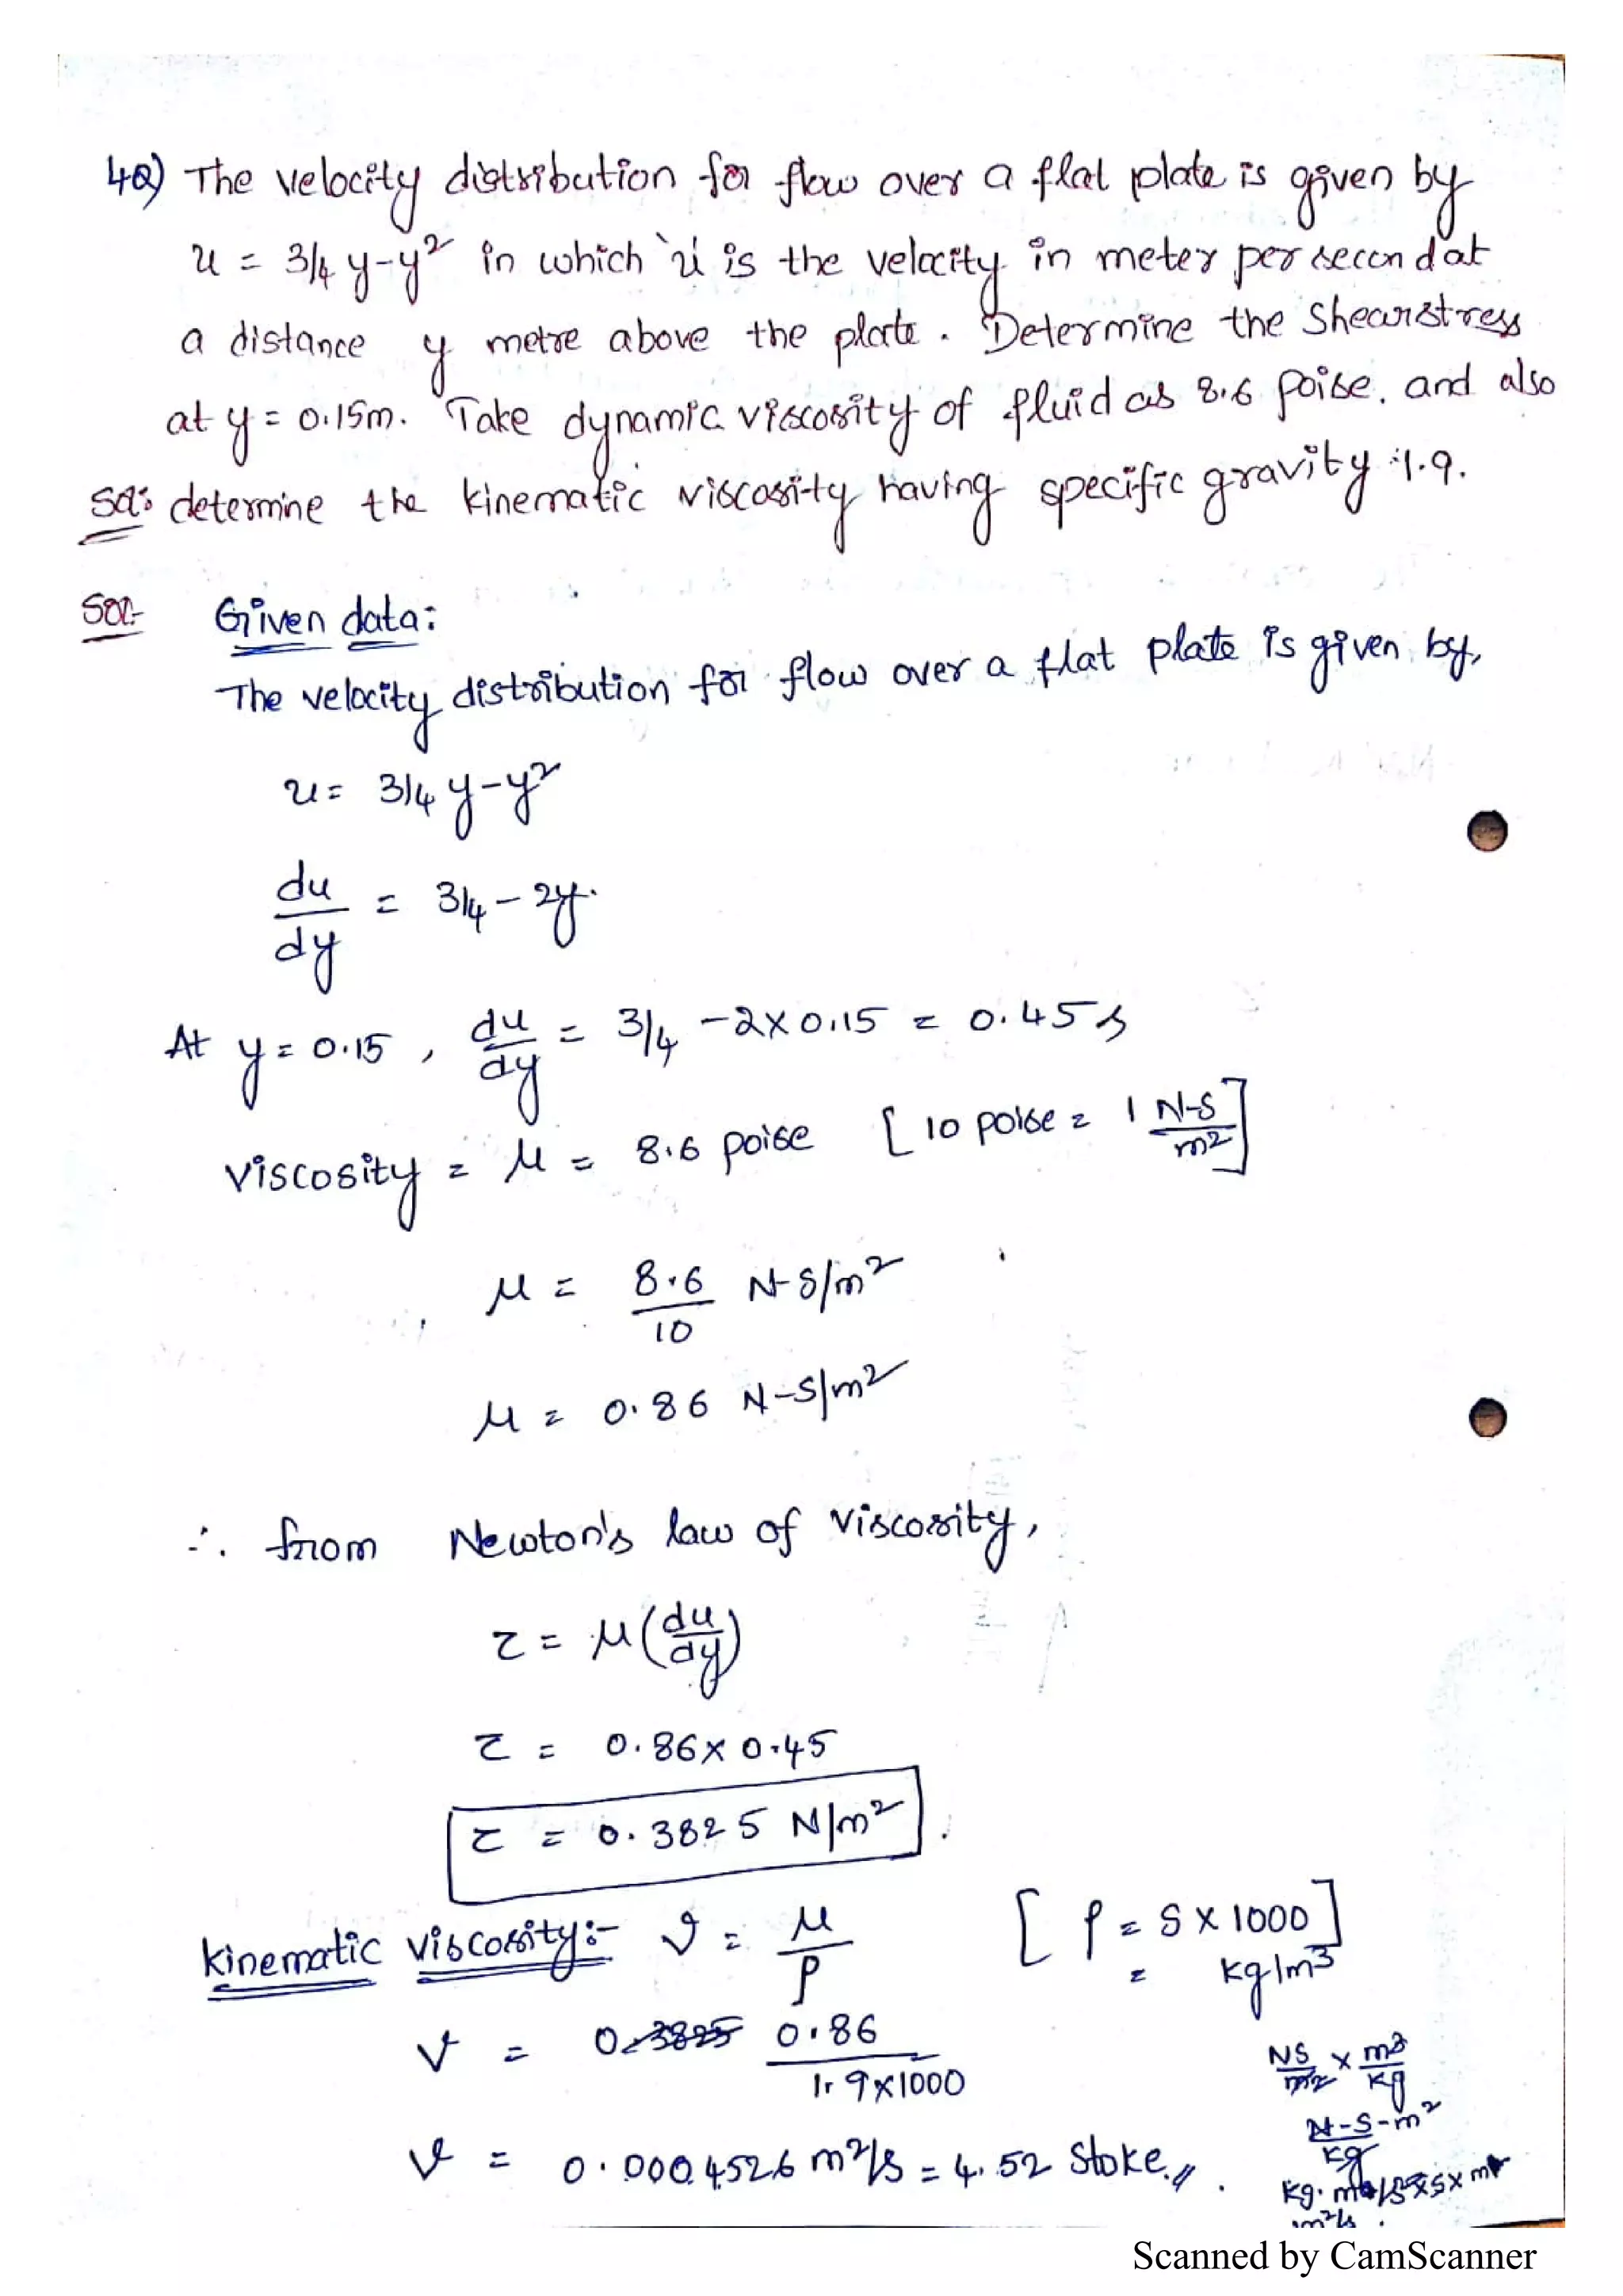 4Q) The velocity distribution for flow over a flat plate is given by
u = 3/4 y-y² in which 'u' is the velocity in meter per second at
a distance y metre above the plate. Determine the Shearstress
at y = 0.15m. Take dynamic viscosity of fluid as 8.6 poise. and also
Sol: determine the kinematic viscosity having specific gravity 1.9.
Sol:- Given data:
The velocity distribution for flow over a flat plate is given by,
u = 3/4 y-y²
du/dy = 3/4 - 2y.
At y = 0.15, du/dy = 3/4 - 2x0.15 = 0.45 s
Viscosity = μ = 8.6 poise [10 poise = 1 N-S/m2]
μ = 8.6/10 N-S/m²
μ = 0.86 N-S/m²
∴ from Newton's law of viscosity,
τ = μ(du/dy)
τ = 0.86x0.45
τ = 0.3825 N/m².
kinematic viscosity:- ν = μ/ρ [ρ = S x 1000]
= kg/m³
ν = 0.3825 0.86/1.9x1000
NS/m2 x m3/kg
N-S-m²/kg
ν = 0.0004526 m²/s = 4.52 Stoke.
m²/s.
Scanned by CamScanner